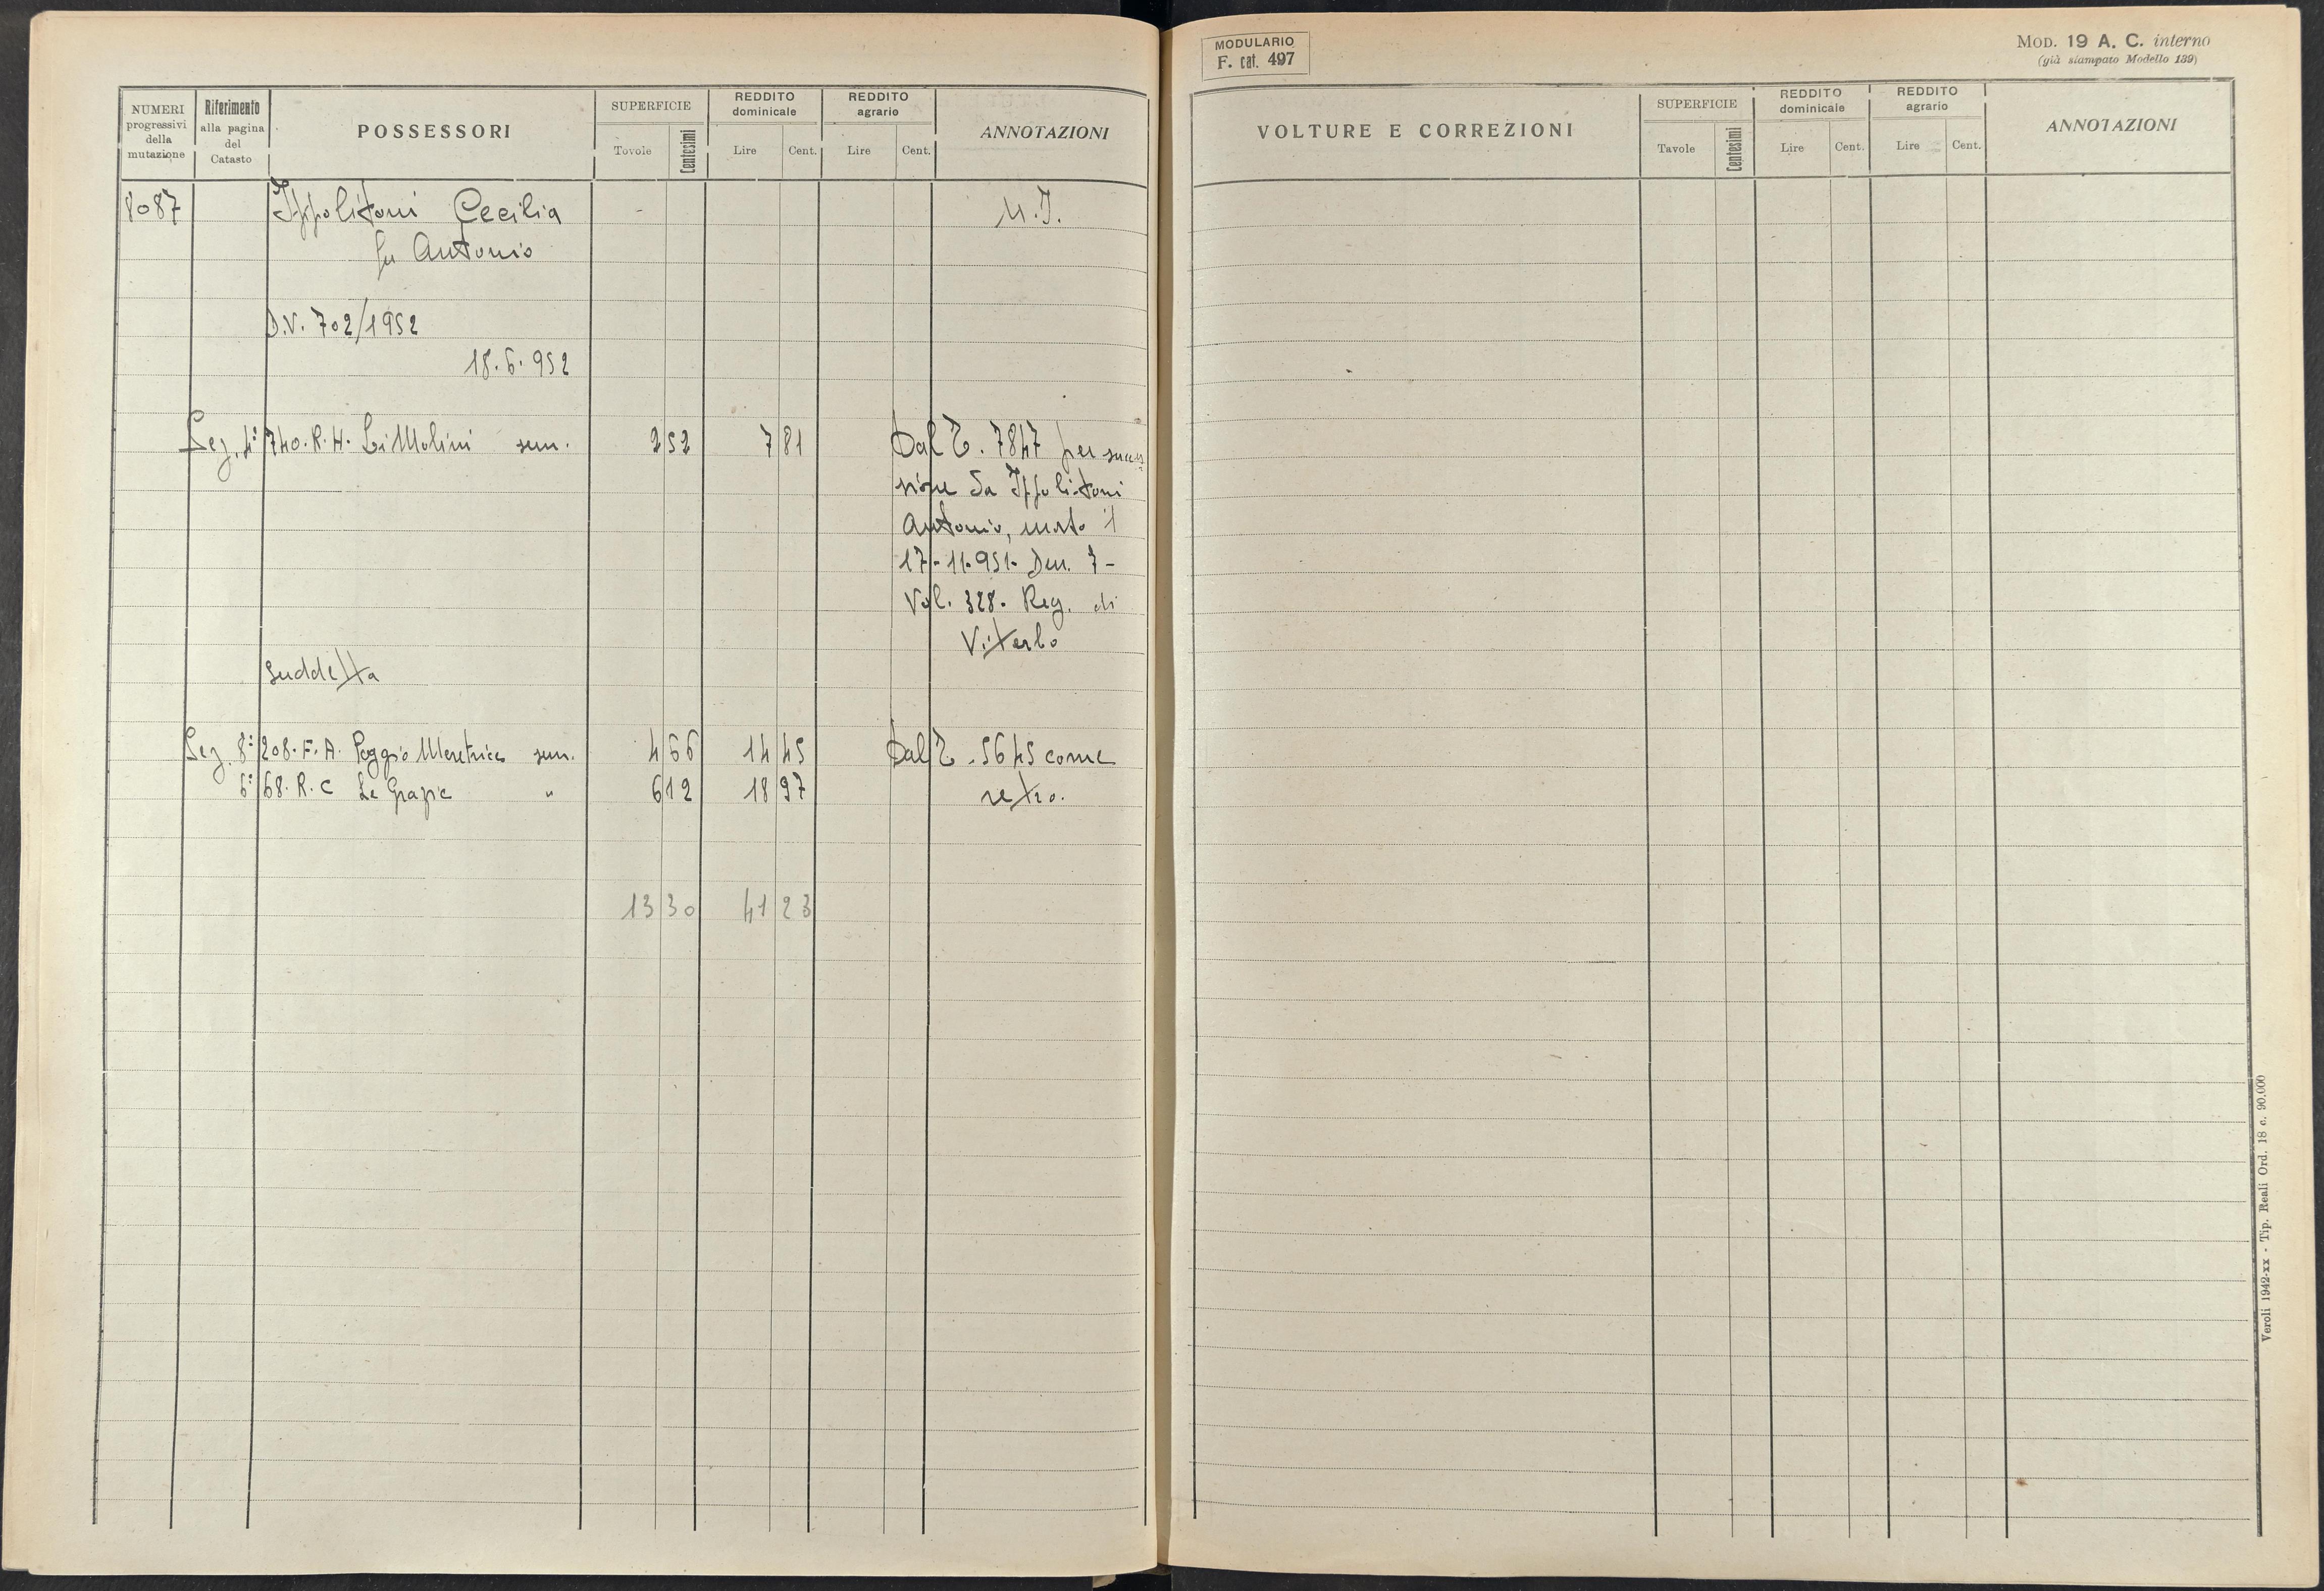 NUMERI progressivi della mutazione
Riferimento alla pagina del Catasto
POSSESSORI
SUPERFICIE
Tovole
Centesimi
REDDITO dominicale
Lire
Cent.
REDDITO agrario
Lire
Cent.
ANNOTAZIONI
8087 Ippolitoni Cecilia
fu Antonio
D.V. 702/1952
18.6.952
Sez. 4ª 740. R. H. Li Molini sem. 2 52 7 81 Dal T. 7847 per succes
sione da Ippolitoni
Antonio, morto il
17-11-951. Den. 7-
Vol. 328. Reg. di
Viterbo
Suddetta
Sez. 8ª 208. F. A. Poggio Meretrice sem. 4 66 14 45 Dal T. 5645 come
6ª 68. R. C Le Grazie " 6 12 18 97 retro.
13 30 41 23
MODULARIO
F. cat. 497
MOD. 19 A. C. interno
(già stampato Modello 139)
VOLTURE E CORREZIONI
SUPERFICIE
Tavole
Centesimi
REDDITO dominicale
Lire
Cent.
REDDITO agrario
Lire
Cent.
ANNOTAZIONI
Veroli 1942-xx - Tip. Reali Ord. 18 c. 90.000